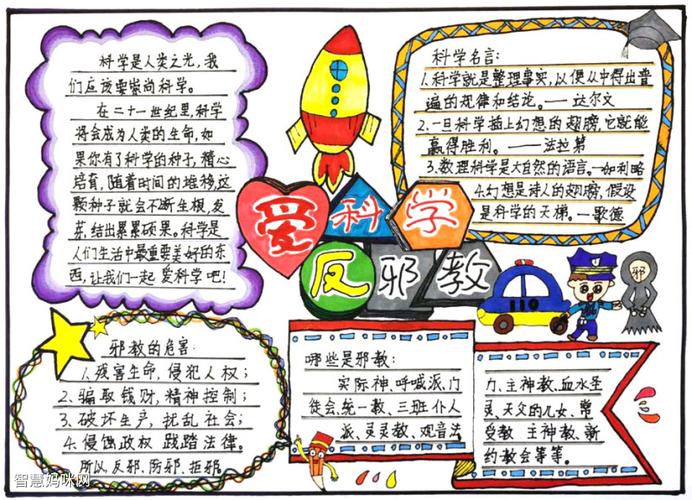 科学是人类之光，我
们应该要崇尚科学。
在二十一世纪里，科学
将会成为人类的生命，如
果你有了科学的种子，精心
培育，随着时间的堆移，这
颗种子就会不断生根，发
芽，结出累累硕果。科学是
人们生活中最重要美好的东
西，让我们一起爱科学吧！
科学名言：
1.科学就是整理事实，以便从中得出普
遍的规律和结论。——达尔文
2.一旦科学插上幻想的翅膀，它就能
赢得胜利。——法拉第
3.数理科学是大自然的语言。—如利略
4.幻想是诗人的翅膀，假设
是科学的天梯。—歌德
爱科学
反邪教
110
邪
邪教的危害：
1.残害生命，侵犯人权；
2.骗取钱财，精神控制；
3.破坏生产，扰乱社会；
4.侵蚀政权 践踏法律。
所以反邪、防邪、拒邪。
哪些是邪教：
实际神、呼喊派、门
徒会、统一教、三班仆人
派、灵灵教、观音法
力、主神教、血水圣
灵、天父的儿女、常
受教 主神教、新
约教会等等。
智慧妈咪网